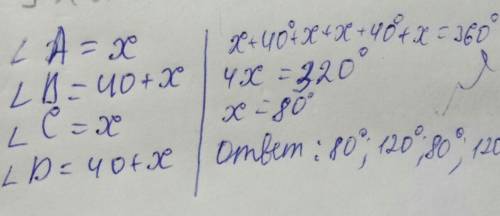 ∠ A = x
∠ B = 40 + x
∠ C = x
∠ D = 40 + x
x + 40° + x + x + 40° + x = 360°
4x = 320°
x = 80°
Ответ: 80°; 120°; 80°; 120